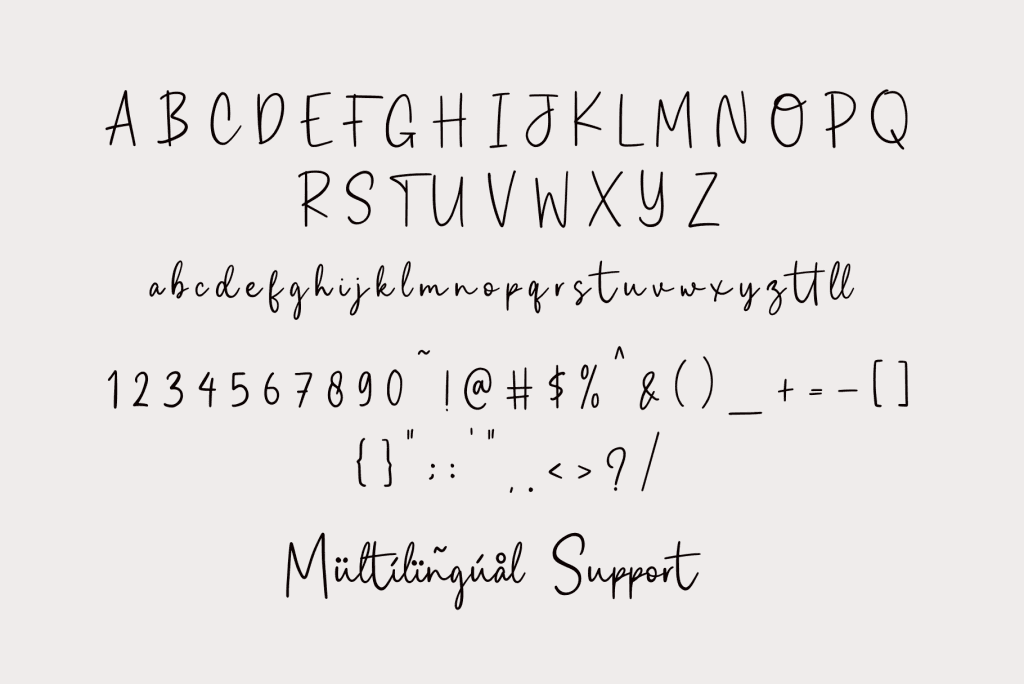 A B C D E F G H I J K L M N O P Q
R S T U V W X Y Z
a b c d e f g h i j k l m n o p q r s t u v w x y z tt ll
1 2 3 4 5 6 7 8 9 0 ~ ! @ # $ % ^ & ( ) _ + = - [ ]
{ } " ; : ' " , . < > ? /
Mültílïñgúål Support